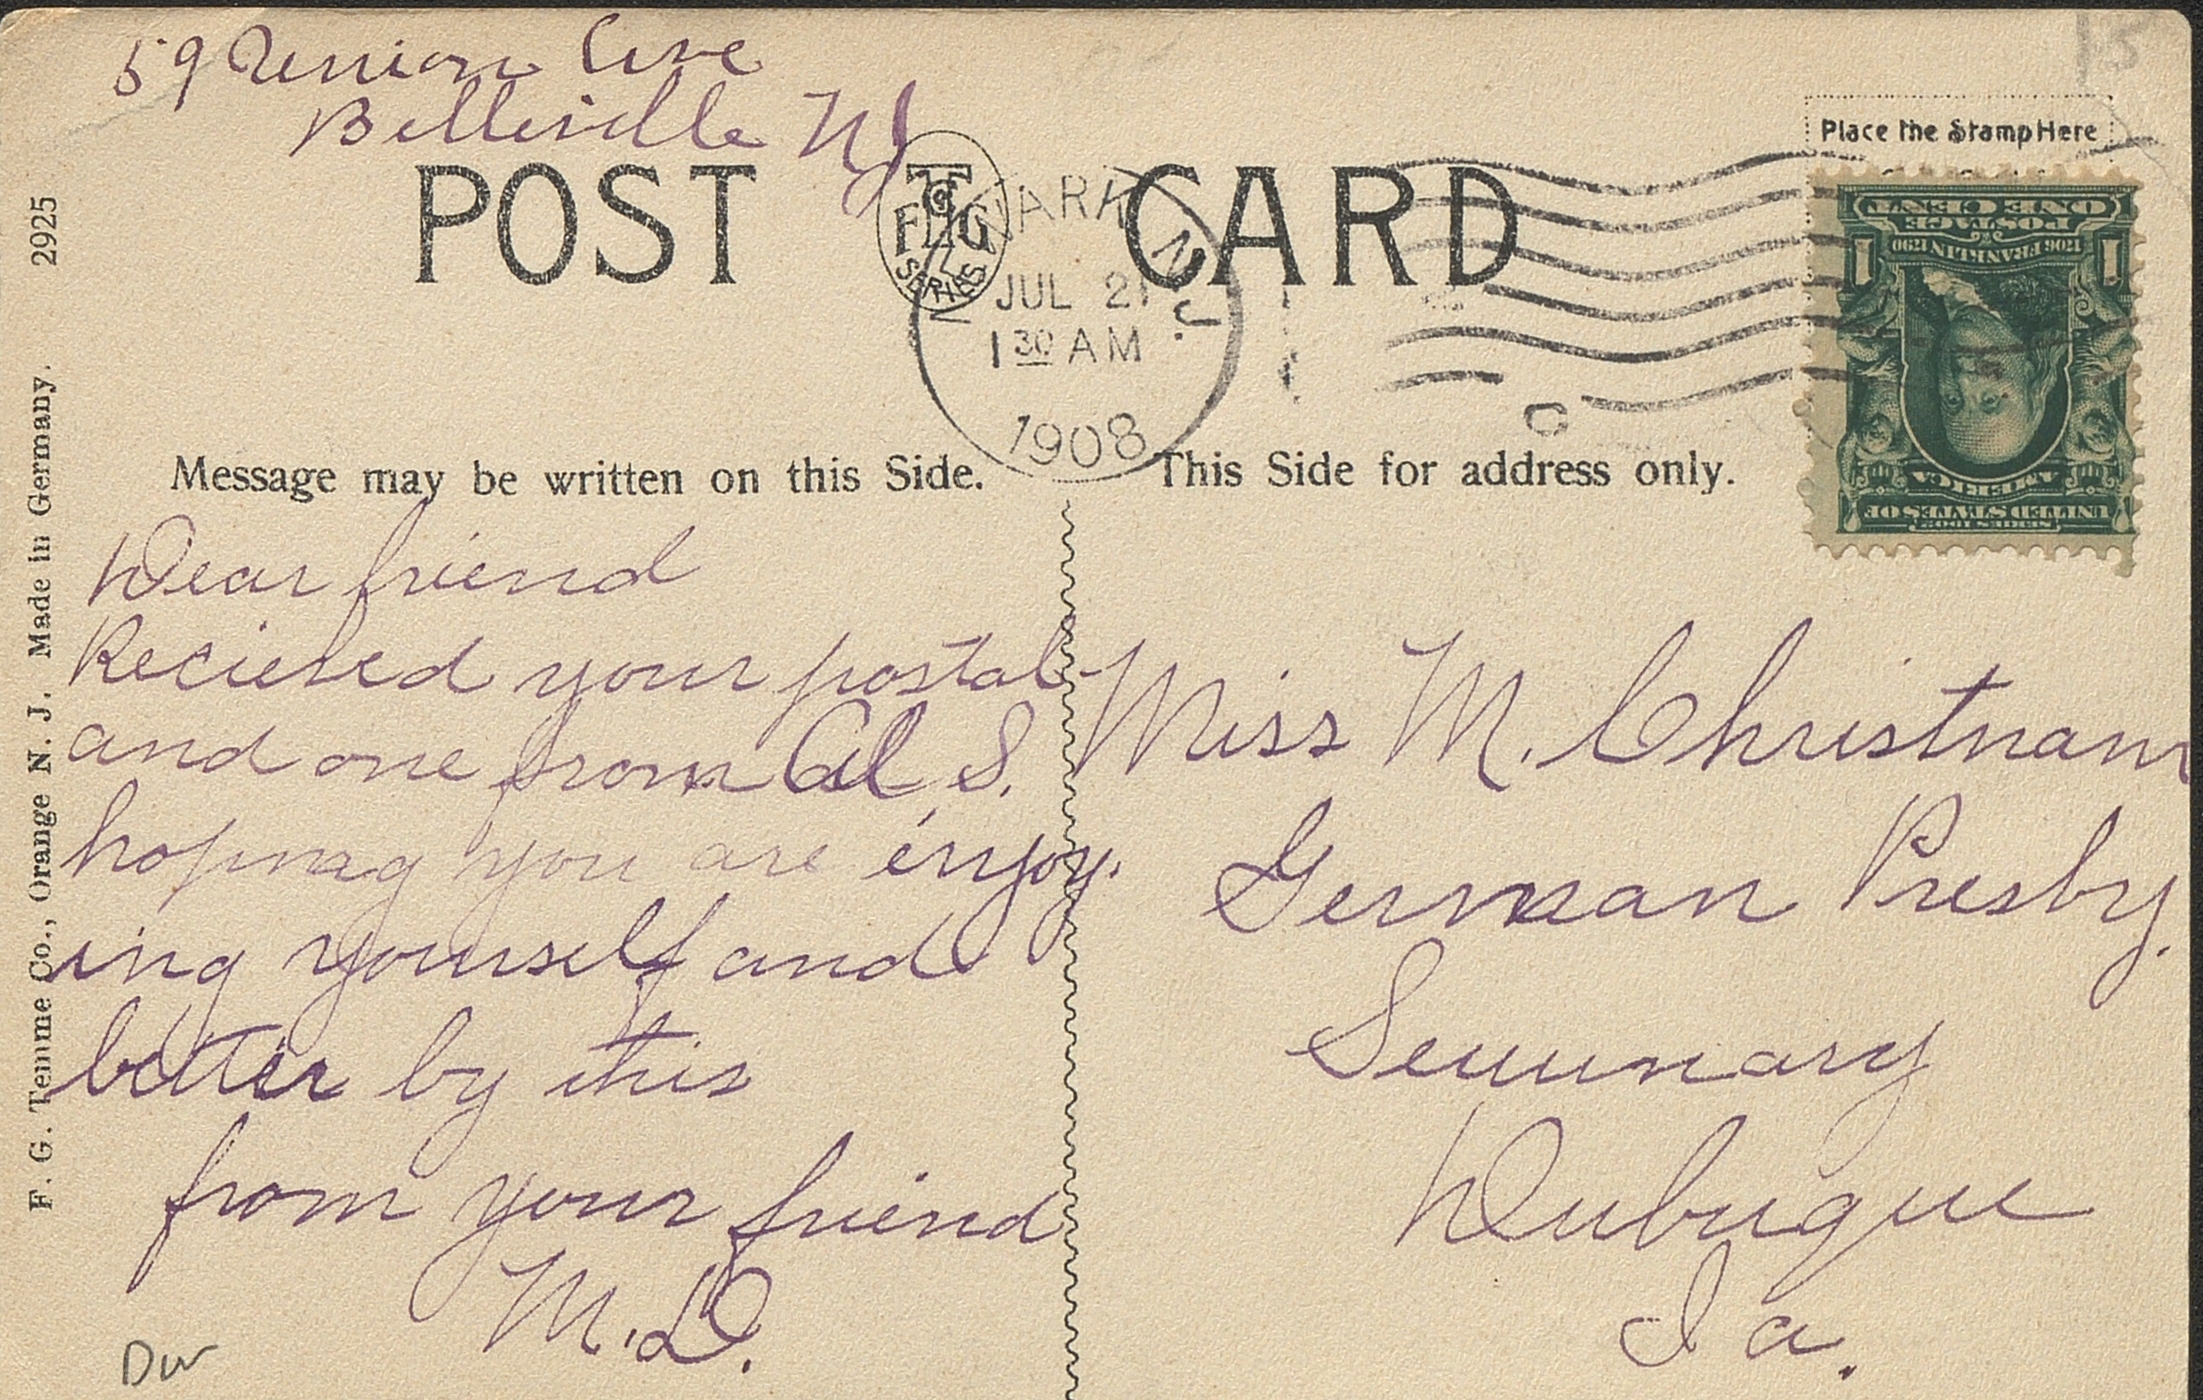 15
59 Union Ave
Belleville NJ
Place the Stamp Here
POST CARD
T & FHG
SERIES
NEWARK, N.J.
JUL 21
1 30 AM
1908
ONE CENT
POSTAGE
1706 FRANKLIN 1790
1 1
AMERICA
UNITED STATES OF
SERIES 1902
Message may be written on this Side.
This Side for address only.
Dear friend
Recieved your postal
and one from Al S.
hoping you are enjoy-
ing yourself and
better by this
from your friend
M. D.
Miss M. Christnam
German Presby.
Seminary
Dubuque
Ia.
F. G. Temme Co., Orange N. J. Made in Germany. 2925